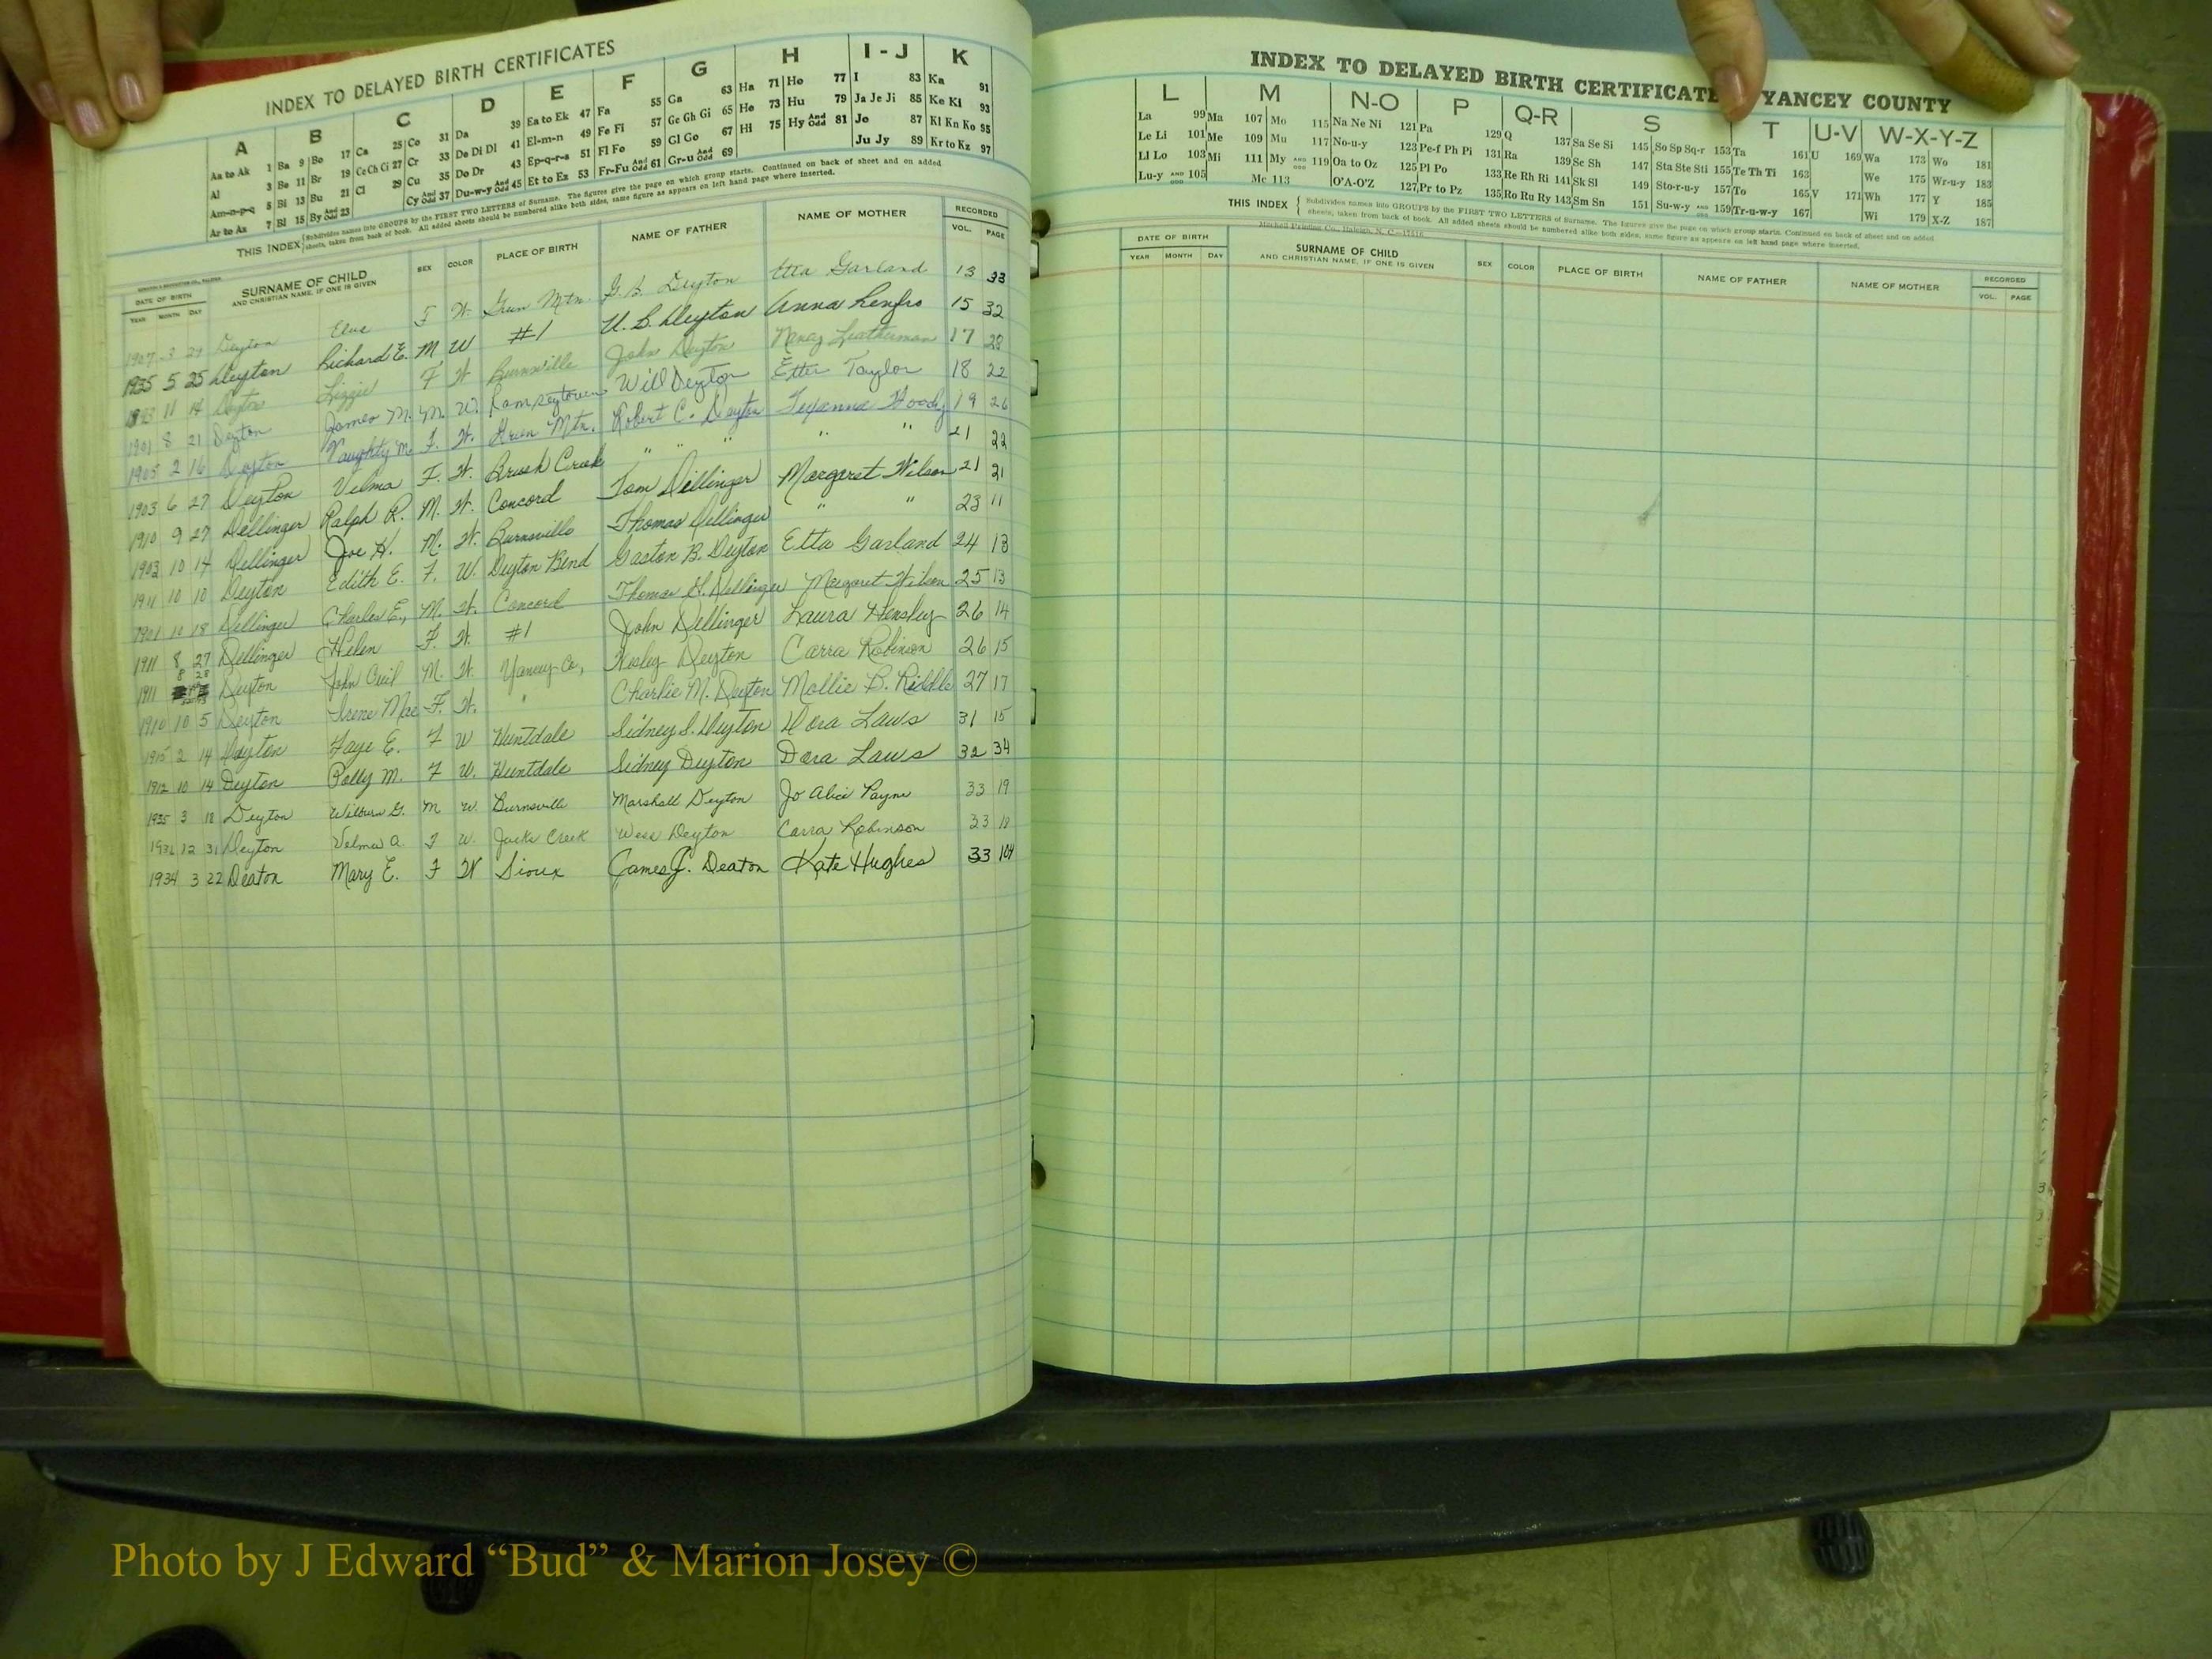 INDEX TO DELAYED BIRTH CERTIFICATES
A B C D E F G H I - J K
Aa to Ak 1 Ba 9 Bo 17 Ca 25 Co 31 Da 39 Ea to Ek 47 Fa 55 Ga 63 Ha 71 Ho 77 I 83 Ka 91
Al 3 Be 11 Br 19 Ce Ch Ci 27 Cr 33 De Di Dl 41 El-m-n 49 Fe Fi 57 Ge Gh Gi 65 He 73 Hu 79 Ja Je Ji 85 Ke Ki 93
Am-n-p-q 5 Bi 13 Bu 21 Cl 29 Cu 35 Do Dr 43 Ep-q-r-s 51 Fl Fo 59 Gl Go 67 Hi 75 Hy And Odd 81 Jo 87 Kl Kn Ko 95
Ar to Ax 7 Bl 15 By And Odd 23 Cy And Odd 37 Du-w-y And Odd 45 Et to Ez 53 Fr-Fu And Odd 61 Gr-u And Odd 69 Ju Jy 89 Kr to Kz 97
THIS INDEX Subdivides names into GROUPS by the FIRST TWO LETTERS of Surname. The figures give the page on which group starts. Continued on back of sheet and on added
sheets, taken from back of book. All added sheets should be numbered alike both sides, same figure as appears on left hand page where inserted.
DATE OF BIRTH SURNAME OF CHILD SEX COLOR PLACE OF BIRTH NAME OF FATHER NAME OF MOTHER RECORDED
YEAR MONTH DAY AND CHRISTIAN NAME, IF ONE IS GIVEN VOL. PAGE
1907 3 29 Deyton F W. Mtn. Deyton Etta Garland 13 33
1935 5 25 Deyton Richard E. M W #1 U. B. Deyton Anna Renfro 15 32
11 14 Deyton Lizzie F W Burnsville John Deyton Nancy Leatherman 17 28
1901 8 21 Deyton James M. M. W. Ramseytown Will Deyton Etter Taylor 18 22
1905 2 16 Deyton F. W. Green Mtn. Robert C. Deyton 19 26
1903 6 27 Deyton Velma F. W. Brush Creek " " " " " 21 22
1910 9 27 Dellinger Ralph R. M. W. Concord Tom Dellinger Margaret Wilson 21 21
1903 10 14 Dellinger Joe H. M. W. Burnsville Thomas Dellinger " " 23 11
1911 10 10 Deyton Edith E. F. W. Deyton Bend Gaston B. Deyton Etta Garland 24 13
1901 10 18 Dellinger Charles E., M. W. Concord Thomas Dellinger Margaret Wilson 25 13
1911 8 27 Dellinger Helen F. W. #1 John Dellinger Laura Hensley 26 14
1911 8 28 Deyton John M. W. Yancey Co., Deyton Carra Robinson 26 15
1910 10 5 Deyton Irene Mae F. W. " Charlie M. Deyton Mollie B. Riddle 27 17
1915 2 14 Deyton Faye E. F W Huntdale Sidney S. Deyton Dora Laws 31 15
1912 10 14 Deyton Polly M. F W. Huntdale Sidney Deyton Dora Laws 32 34
1935 3 18 Deyton Wilburn G. M W. Burnsville Marshall Deyton Jo Alice Payne 33 19
12 31 Deyton Velma A. F W. Jacks Creek Wess Deyton Carra Robinson 33
1934 3 22 Deaton Mary E. F W Sioux James J. Deaton Kate Hughes 33 104
INDEX TO DELAYED BIRTH CERTIFICATE YANCEY COUNTY
L M N-O P Q-R S T U-V W-X-Y-Z
La 99 Ma 107 Mo 115 Na Ne Ni 121 Pa 129 Q 137 Sa Se Si 145 So Sp Sq-r 153 Ta 161 U 169 Wa 173 Wo 181
Le Li 101 Me 109 Mu 117 No-u-y 123 Pe-f Ph Pi 131 Ra 139 Sc Sh 147 Sta Ste Sti 155 Te Th Ti 163 We 175 Wr-u-y 183
Ll Lo 103 Mi 111 My AND ODD 119 Oa to Oz 125 Pl Po 133 Re Rh Ri 141 Sk Sl 149 Sto-r-u-y 157 To 165 V 171 Wh 177 Y 185
Lu-y AND ODD 105 Mc 113 O'A-O'Z 127 Pr to Pz 135 Ro Ru Ry 143 Sm Sn 151 Su-w-y AND ODD 159 Tr-u-w-y 167 Wi 179 X-Z 187
THIS INDEX Subdivides names into GROUPS by the FIRST TWO LETTERS of Surname. The figures give the page on which group starts. Continued on back of sheet and on added
sheets, taken from back of book. All added sheets should be numbered alike both sides, same figure as appears on left hand page where inserted.
Mitchell Printing Co., Raleigh, N. C.
DATE OF BIRTH SURNAME OF CHILD SEX COLOR PLACE OF BIRTH NAME OF FATHER NAME OF MOTHER RECORDED
YEAR MONTH DAY AND CHRISTIAN NAME, IF ONE IS GIVEN VOL. PAGE
Photo by J Edward “Bud” & Marion Josey ©